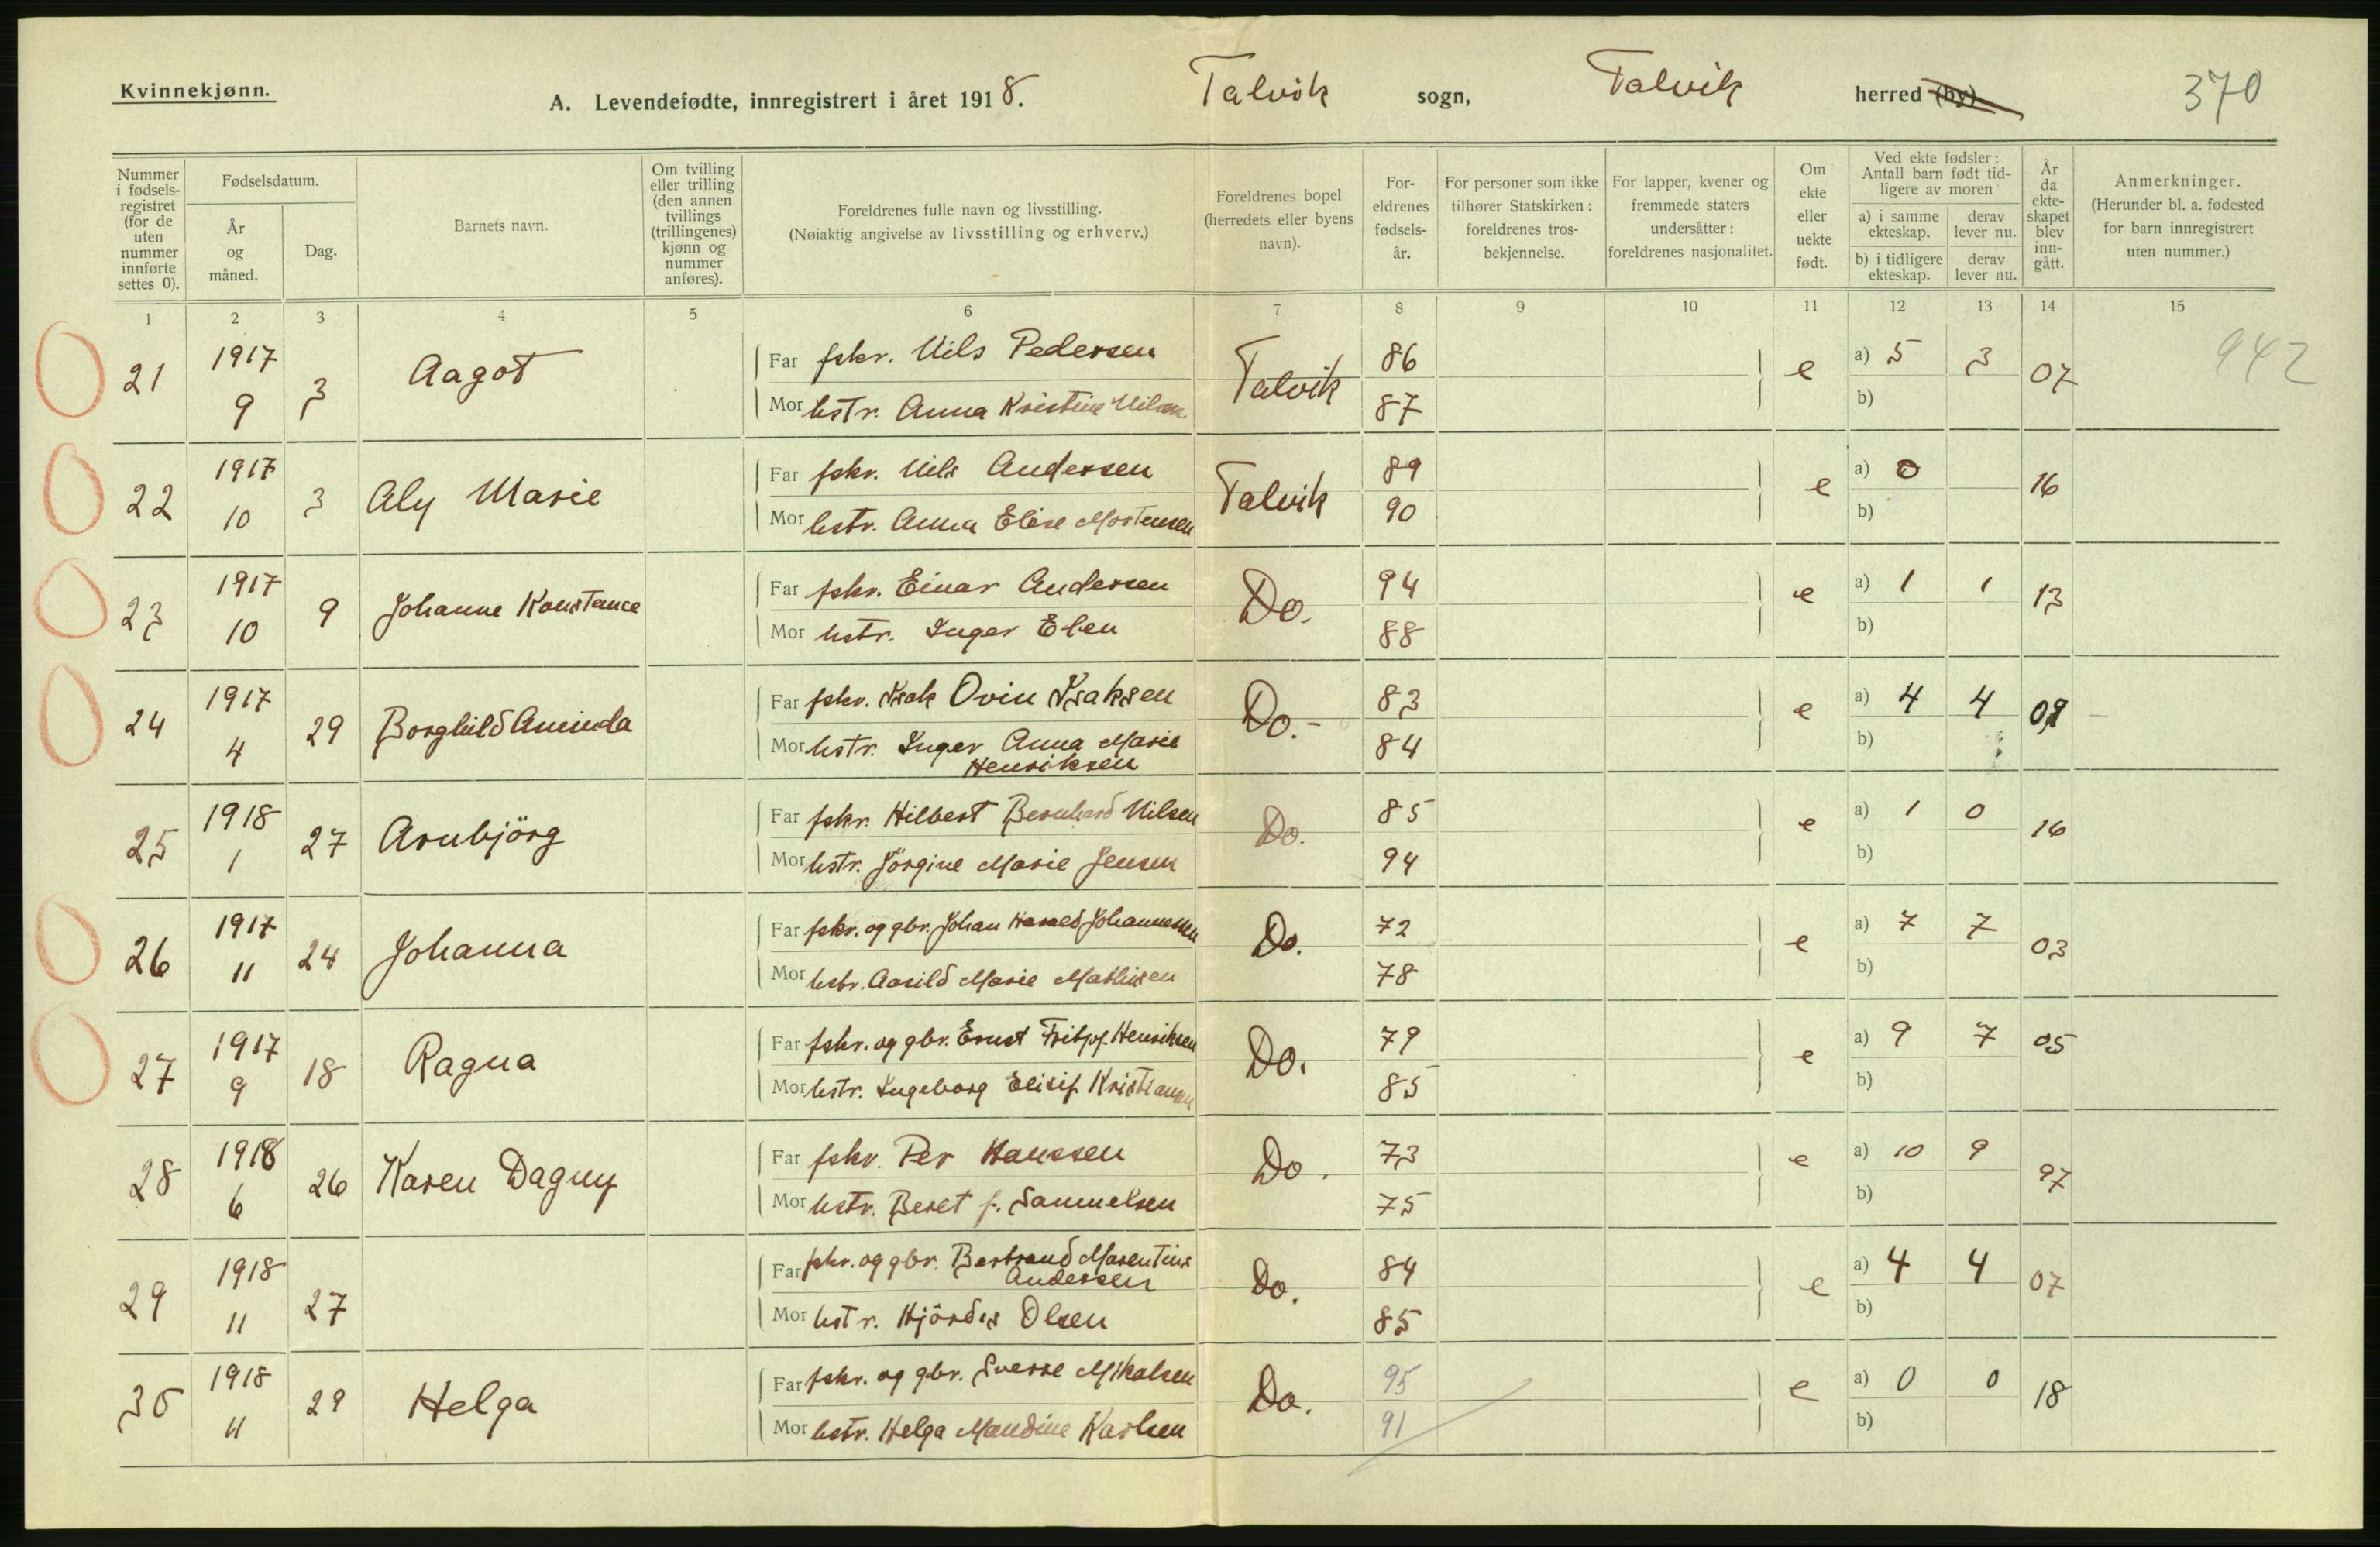 Kvinnekjønn.
A. Levendefødte, innregistrert i året 1918. Talvik sogn, Talvik herred (by) 370
Nummer i fødselsregistret (for de uten nummer innførte settes 0).
Fødselsdatum.
År og måned.
Dag.
Barnets navn.
Om tvilling eller trilling (den annen tvillings (trillingenes) kjønn og nummer anføres).
Foreldrenes fulle navn og livsstilling.
(Nøiaktig angivelse av livsstilling og erhverv.)
Foreldrenes bopel (herredets eller byens navn).
Foreldrenes fødselsår.
For personer som ikke tilhører Statskirken: foreldrenes trosbekjennelse.
For lapper, kvener og fremmede staters undersåtter: foreldrenes nasjonalitet.
Om ekte eller uekte født.
Ved ekte fødsler: Antall barn født tidligere av moren
a) i samme ekteskap. derav lever nu.
b) i tidligere ekteskap. derav lever nu.
År da ekteskapet blev inngått.
Anmerkninger.
(Herunder bl. a. fødested for barn innregistrert uten nummer.)
1 2 3 4 5 6 7 8 9 10 11 12 13 14 15
21 1917 9 3 Aagot Far fskr. Nils Pedersen Talvik 86 e a) 5 3 07 942
Mor hstr. Anna Kristine Nilsen 87 b)
22 1917 10 3 Aly Marie Far fskr. Nils Andersen Talvik 89 e a) 0 16
Mor hstr. Anna Elise Mortensen 90 b)
23 1917 10 9 Johanne Konstance Far fskr. Einar Andersen Do. 94 e a) 1 1 13
Mor hstr. Inger Elen 88 b)
24 1917 4 29 Borghild Aminda Far fskr. Isak Ovin Isaksen Do.- 83 e a) 4 4 09
Mor hstr. Inger Anna Marie Henriksen 84 b)
25 1918 1 27 Arnbjörg Far fskr. Hilbert Bernhard Nilsen Do. 85 e a) 1 0 16
Mor hstr. Jörgine Marie Jensen 94 b)
26 1917 11 24 Johanna Far fskr. og gbr. Johan Harald Johannessen Do. 72 e a) 7 7 03
Mor hstr. Aasild Marie Mathisen 78 b)
27 1917 9 18 Ragna Far fskr. og gbr. Ernst Fritjof Henriksen Do. 79 e a) 9 7 05
Mor hstr. Ingeborg Elisif Kristiansen 85 b)
28 1918 6 26 Karen Dagny Far fskr. Per Hanssen Do. 73 e a) 10 9 97
Mor hstr. Beret f. Samuelsen 75 b)
29 1918 11 27 Far fskr. og gbr. Bertrand Marentius Andersen Do. 84 e a) 4 4 07
Mor hstr. Hjördis Olsen 85 b)
30 1918 11 29 Helga Far fskr. og gbr. Sverre Mikalsen Do. 95 e a) 0 0 18
Mor hstr. Helga Mandine Karlsen 91 b)